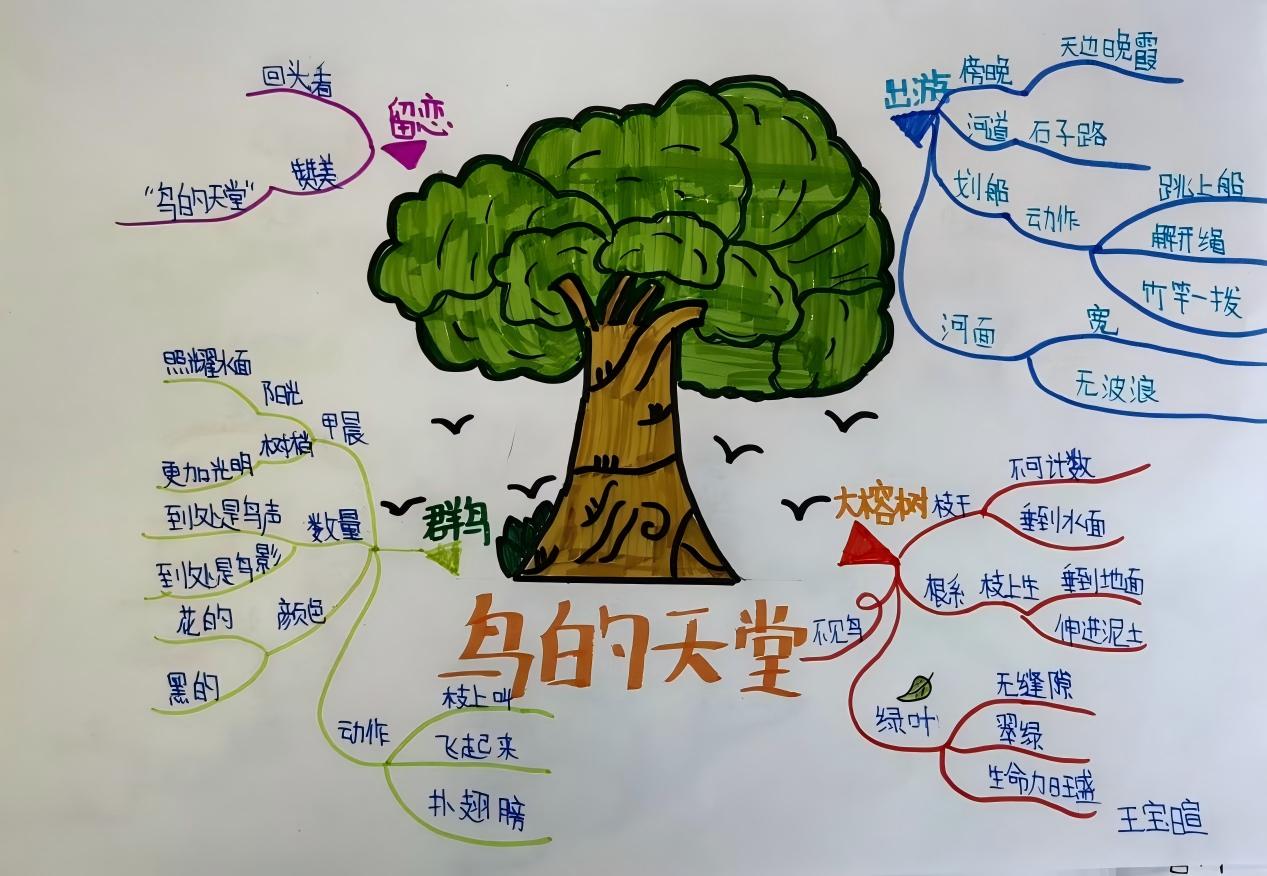 鸟的天堂
出游
傍晚
天边晚霞
河道
石子路
划船
动作
跳上船
解开绳
竹竿一拨
河面
宽
无波浪
大榕树
枝干
不可计数
垂到水面
根系
枝上生
垂到地面
伸进泥土
不见鸟
绿叶
无缝隙
翠绿
生命力旺盛
群鸟
早晨
阳光
照耀水面
树梢
更加光明
数量
到处是鸟声
到处是鸟影
颜色
花的
黑的
动作
枝上叫
飞起来
扑翅膀
留恋
回头看
赞美
“鸟的天堂”
王宝暄